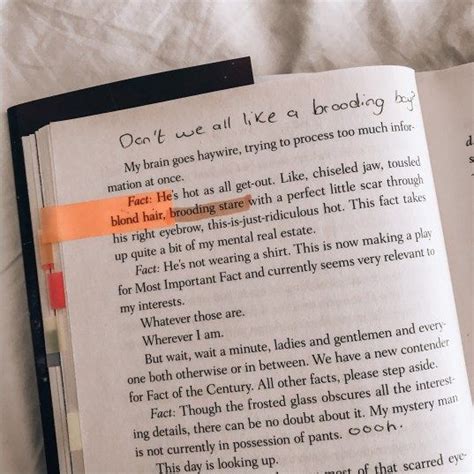 Don't we all like a brooding boy?
My brain goes haywire, trying to process too much infor-
mation at once.
Fact: He's hot as all get-out. Like, chiseled jaw, tousled
blond hair, brooding stare with a perfect little scar through
his right eyebrow, this-is-just-ridiculous hot. This fact takes
up quite a bit of my mental real estate.
Fact: He's not wearing a shirt. This is now making a play
for Most Important Fact and currently seems very relevant to
my interests.
Whatever those are.
Wherever I am.
But wait, wait a minute, ladies and gentlemen and every-
one both otherwise or in between. We have a new contender
for Fact of the Century. All other facts, please step aside.
Fact: Though the frosted glass obscures all the interest-
ing details, there can be no doubt about it. My mystery man
is not currently in possession of pants. oooh.
This day is looking up.